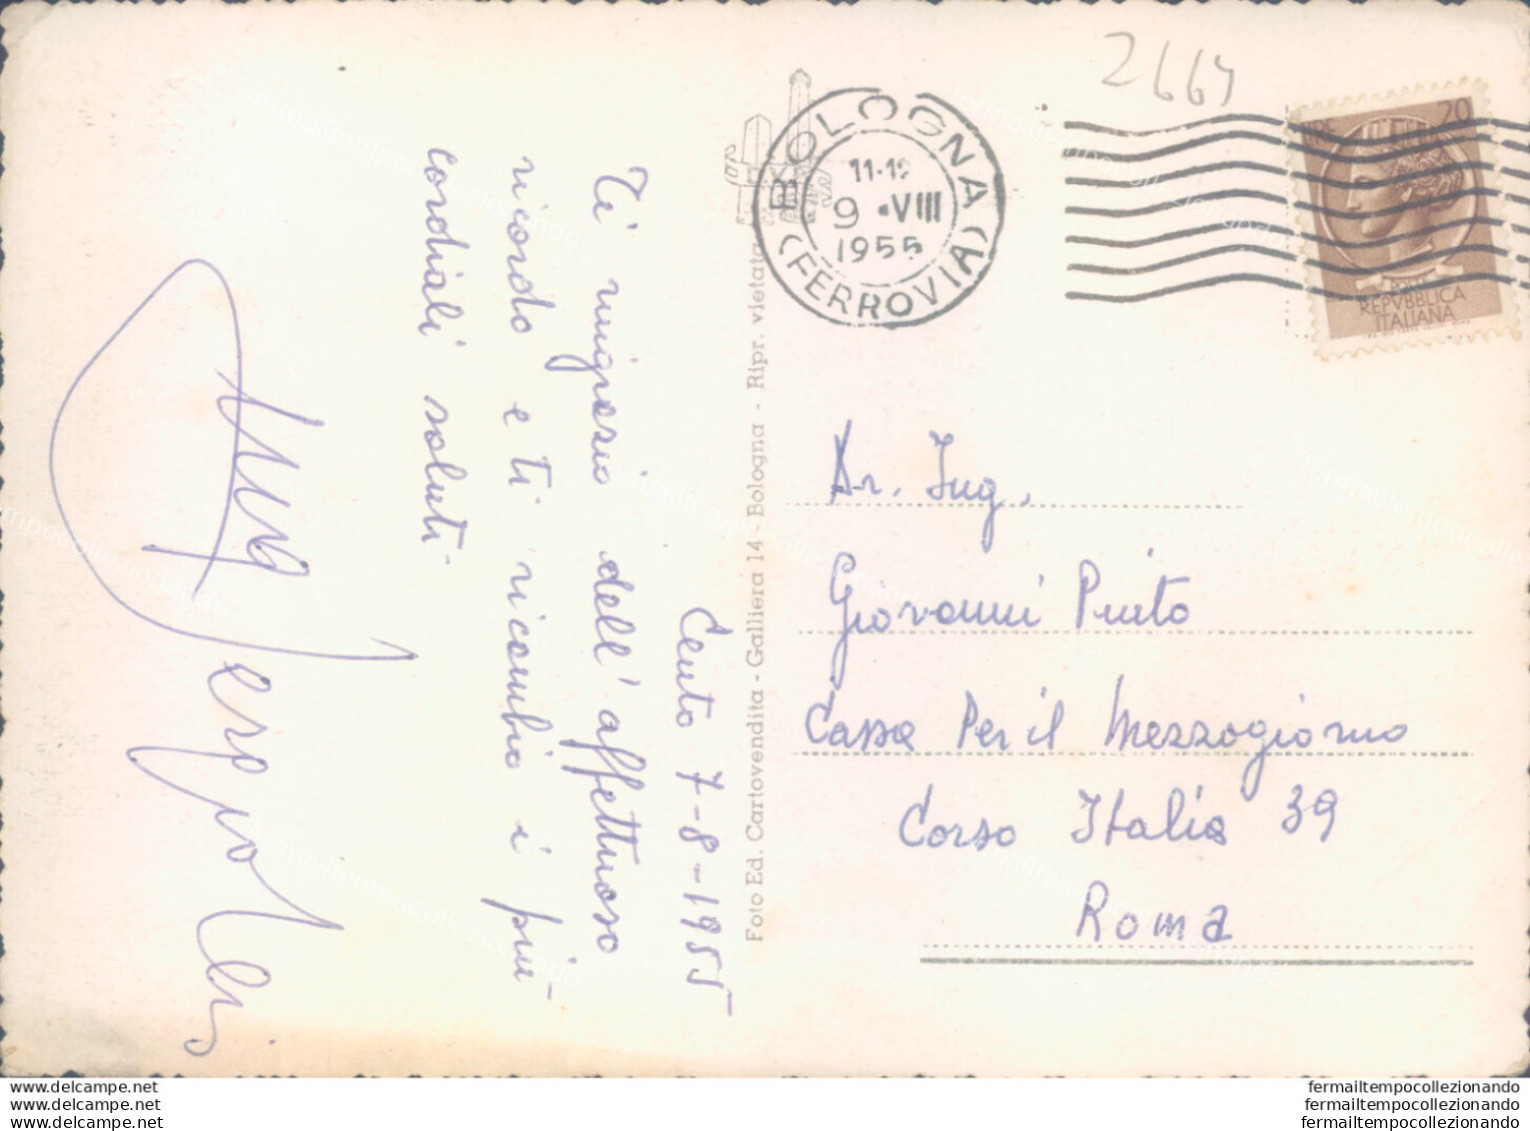 2664
BOLOGNA
(FERROVIA)
11-12
9 •VIII
1955
LIRE 20
ROMA
REPVBBLICA
ITALIANA
Cento 7-8-1955
Ti ringrazio dell'affettuoso
ricordo e ti ricambio i più
cordiali saluti
Foto Ed. Cartovendita - Galliera 14 - Bologna - Ripr. vietata
Dr. Ing.
Giovanni Pinto
Cassa Per il Mezzogiorno
Corso Italia 39
Roma
www.delcampe.net
www.delcampe.net
www.delcampe.net
fermailtempocollezionando
fermailtempocollezionando
fermailtempocollezionando